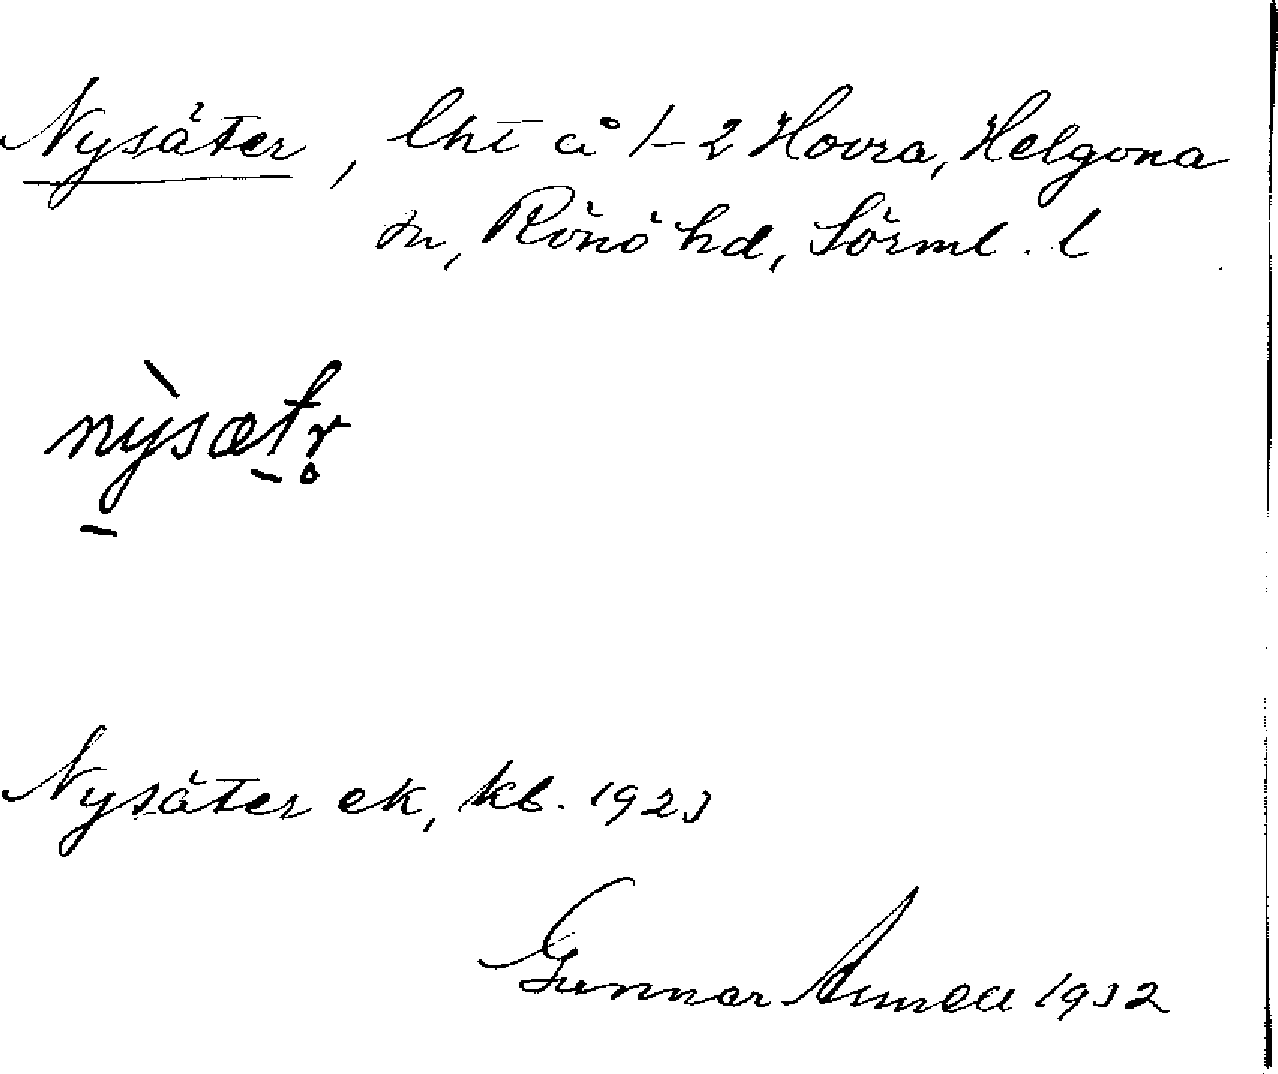 Nysäter, lht å 1-2 Hovra, Helgona
sn, Rönö hd, Sörml. l
nỳsætr̥
Nysäter ek, kb. 1923
Gunnar 1932